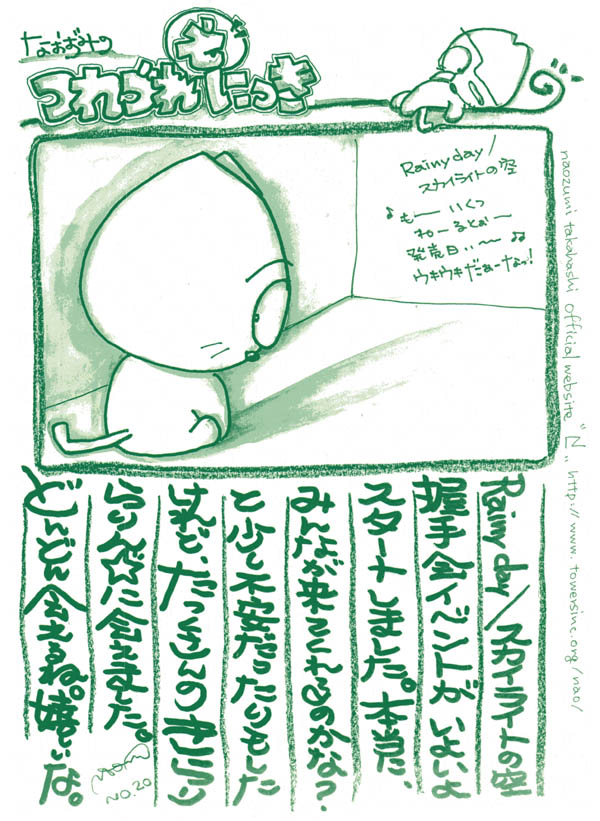 なおずみの
つれづれ にっき
Rainy day/
スカイライトの空
♪もー いくつ
ねーるとぉー
発売日ぃ〜♫
ウキウキだぁーなっ!
naozumi takahashi official website "N" http://www.towersinc.org/nao/
Rainy day/スカイライトの空
握手会イベントがいよいよ
スタートしました。本当に、
みんなが来てくれるのかな?
と少し不安だったりもした
けれど、たっくさんの
に会えました。
どんどん会えるね。嬉しいな。
NO.20